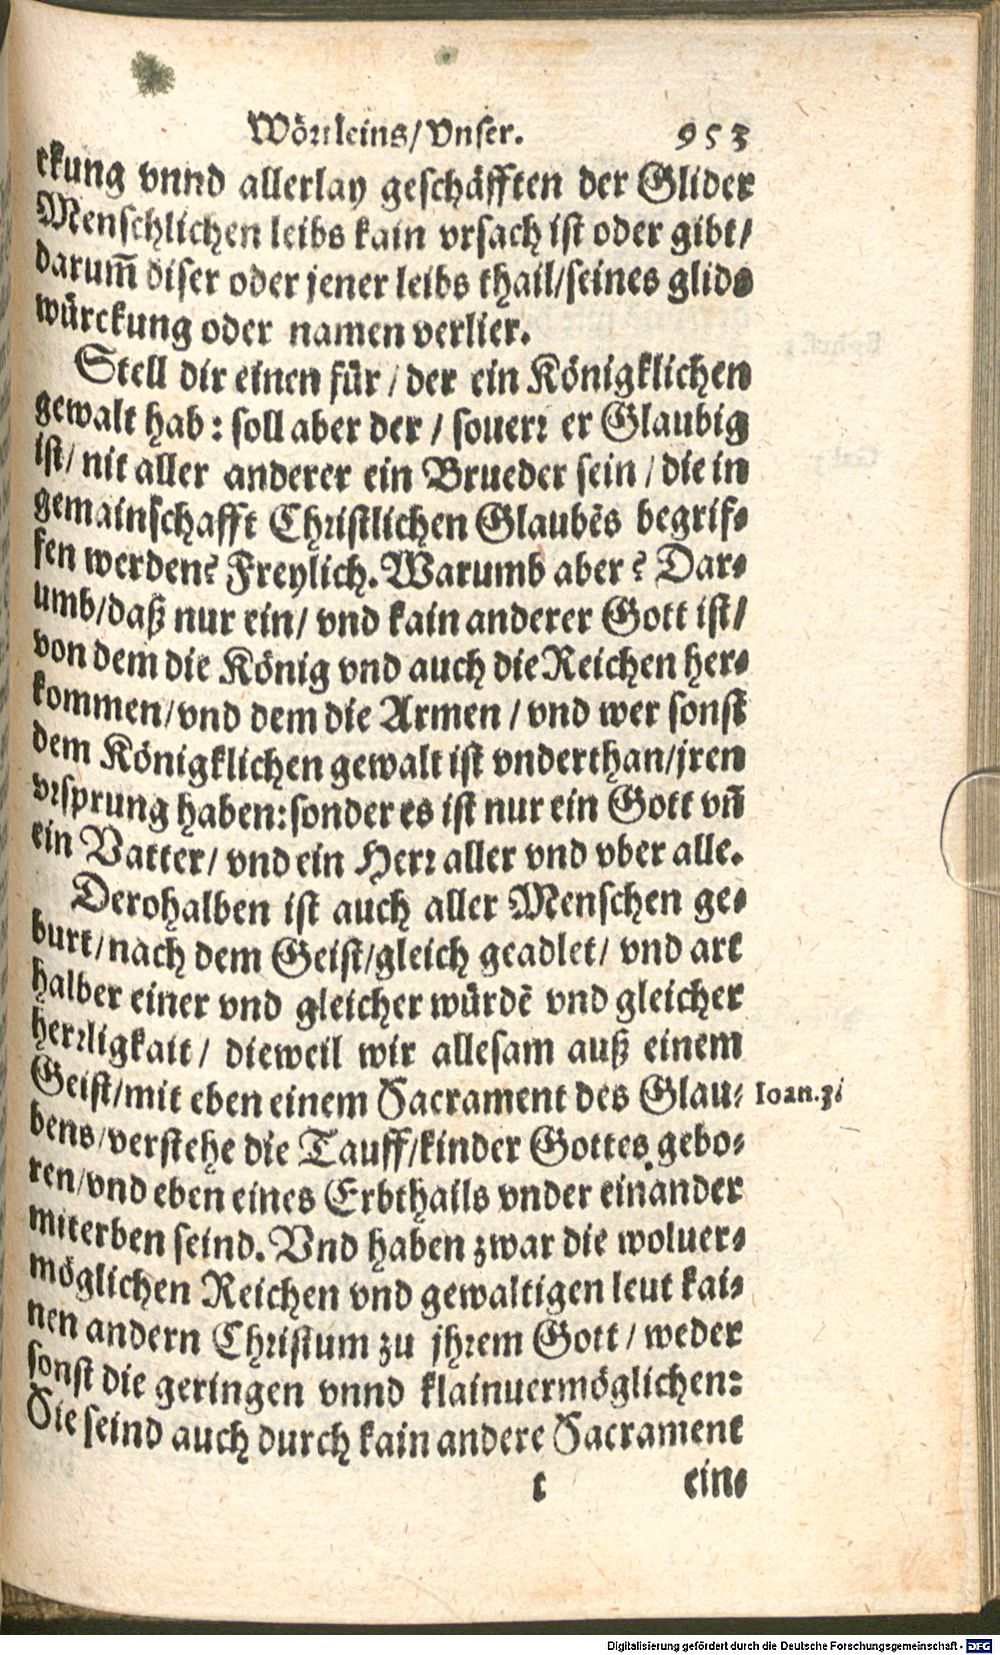 Wörtleins/Vnser. 953
rkung vnnd allerlay geschäfften der Glider
Menschlichen leibs kain vrsach ist oder gibt/
darum̃ diser oder jener leibs thail/seines glids
würckung oder namen verlier.
Stell dir einen für/der ein Königklichen
gewalt hab: soll aber der/souerr er Glaubig
ist/nit aller anderer ein Brueder sein/die in
gemainschafft Christlichen Glaubẽs begrif-
fen werden? Freylich. Warumb aber? Dar-
umb/daß nur ein/vnd kain anderer Gott ist/
von dem die König vnd auch die Reichen her-
kommen/vnd dem die Armen/vnd wer sonst
dem Königklichen gewalt ist vnderthan/jren
vrsprung haben: sonder es ist nur ein Gott vñ
ein Vatter/vnd ein Herr aller vnd vber alle.
Derohalben ist auch aller Menschen ge-
burt/nach dem Geist/gleich geadlet/vnd art
halber einer vnd gleicher würdẽ vnd gleicher
herrligkait/dieweil wir allesam auß einem
Geist/mit eben einem Sacrament des Glau- Ioan.3.
bens/verstehe die Tauff/kinder Gottes gebo-
ren/vnd eben eines Erbthails vnder einander
miterben seind. Vnd haben zwar die woluer-
möglichen Reichen vnd gewaltigen leut kai-
nen andern Christum zu jhrem Gott/weder
sonst die geringen vnnd klainuermöglichen:
Sie seind auch durch kain andere Sacrament
t ein-
Digitalisierung gefördert durch die Deutsche Forschungsgemeinschaft - DFG